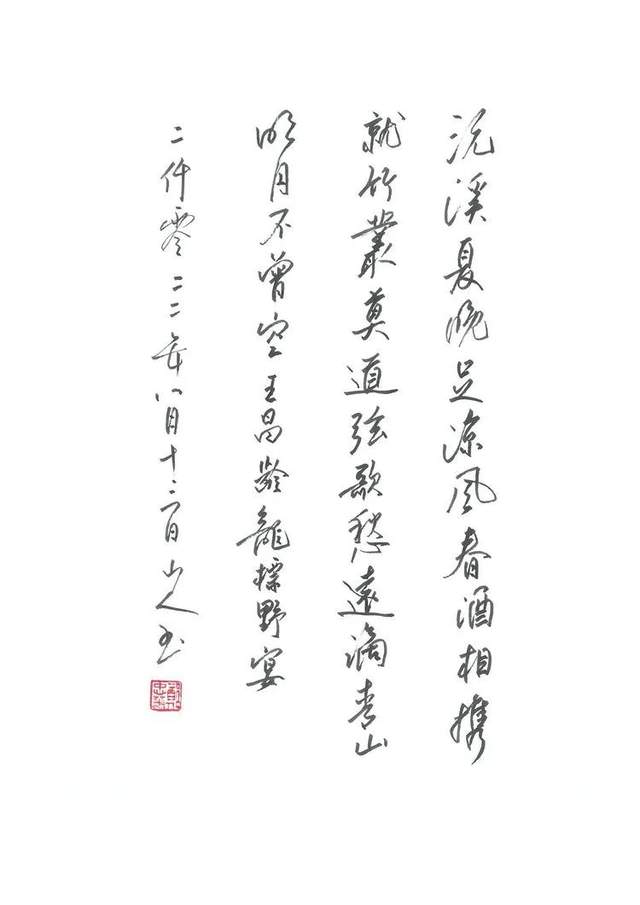 沅溪夏晚足凉风春酒相携
就竹叢莫道弦歌愁遠謫青山
明月不曾空王昌齡龍標野宴
二仟零二二年八月十三日山人书